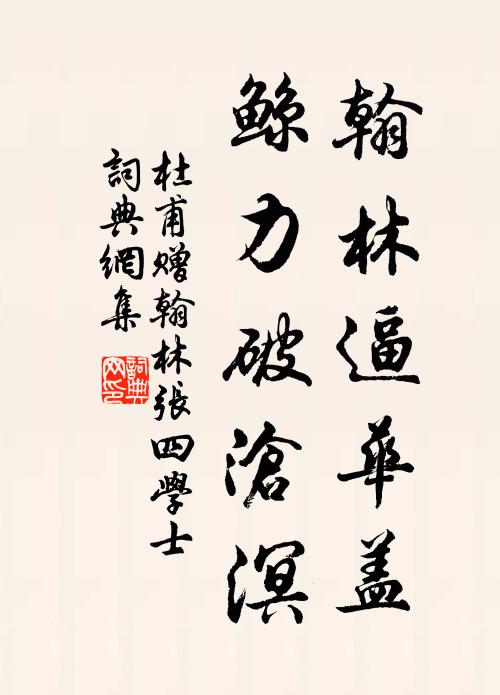 翰林逼華蓋
鲸力破滄溟
杜甫赠翰林張四學士
詞典網集
詞典
网印